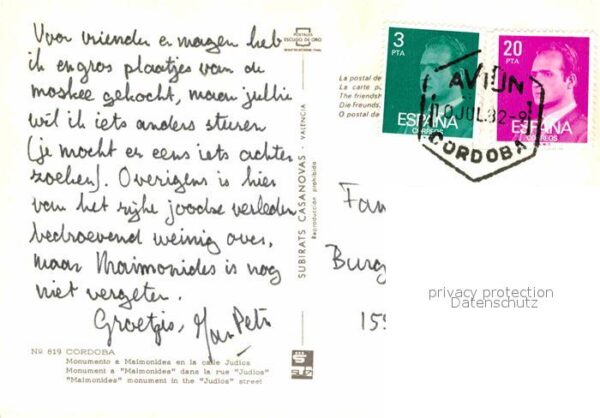 Voor vrienden en magen heb
ik en gros plaatjes van de
moskee gekocht, maar jullie
wil ik iets anders sturen
(je mocht er eens iets achter
zoeken). Overigens is hier
van het rijke joodse verleden
bedroevend weinig over,
maar Maimonides is nog
niet vergeten.
Groetjes, Jan Petr
No 619 CORDOBA
Monumento a Maimonides en la calle Judios
Monument a "Maimonides" dans la rue "Judios"
"Maimonides" monument in the "Judios" street
POSTALES
ESCUDO DE ORO
SUBIRATS CASANOVAS - VALENCIA
Reproduccion prohibida
La postal de
La carte po
The friendsh
Die Freunds
O postal de
3
PTA
ESPAÑA
CORREOS
20
PTA
ESPAÑA
CORREOS
AVION
JUL.82
CORDOBA
Fam
Burg
159
privacy protection
Datenschutz